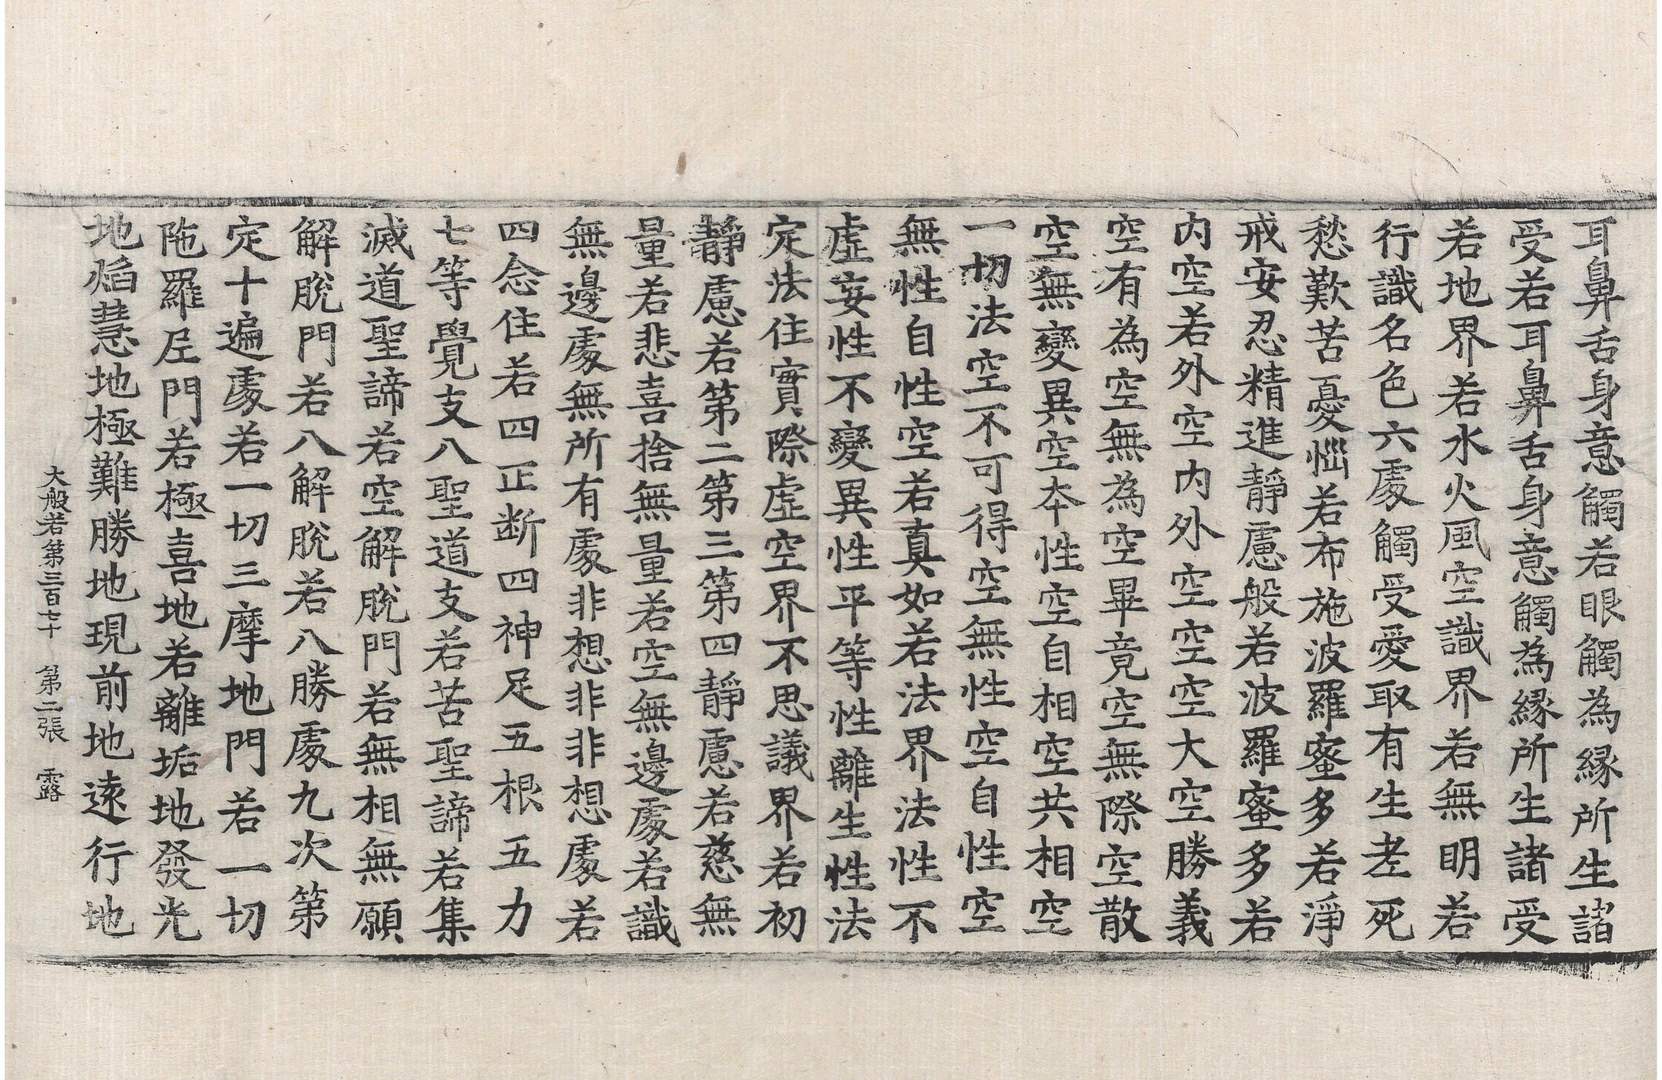 耳鼻舌身意觸若眼觸為縁所生諸
受若耳鼻舌身意觸為縁所生諸受
若地界若水火風空識界若無明若
行識名色六處觸受愛取有生老死
愁歎苦憂惱若布施波羅蜜多若淨
戒安忍精進靜慮般若波羅蜜多若
内空若外空内外空空空大空勝義
空有為空無為空畢竟空無際空散
空無變異空本性空自相空共相空
一切法空不可得空無性空自性空
無性自性空若真如若法界法性不
虛妄性不變異性平等性離生性法
定法住實際虛空界不思議界若初
靜慮若第二第三第四靜慮若慈無
量若悲喜捨無量若空無邊處若識
無邊處無所有處非想非非想處若
四念住若四正断四神足五根五力
七等覺支八聖道支若苦聖諦若集
滅道聖諦若空解脫門若無相無願
解脫門若八解脫若八勝處九次第
定十遍處若一切三摩地門若一切
陁羅尼門若極喜地若離垢地發光
地焰慧地極難勝地現前地遠行地
大般若第三百七十 第二張 露